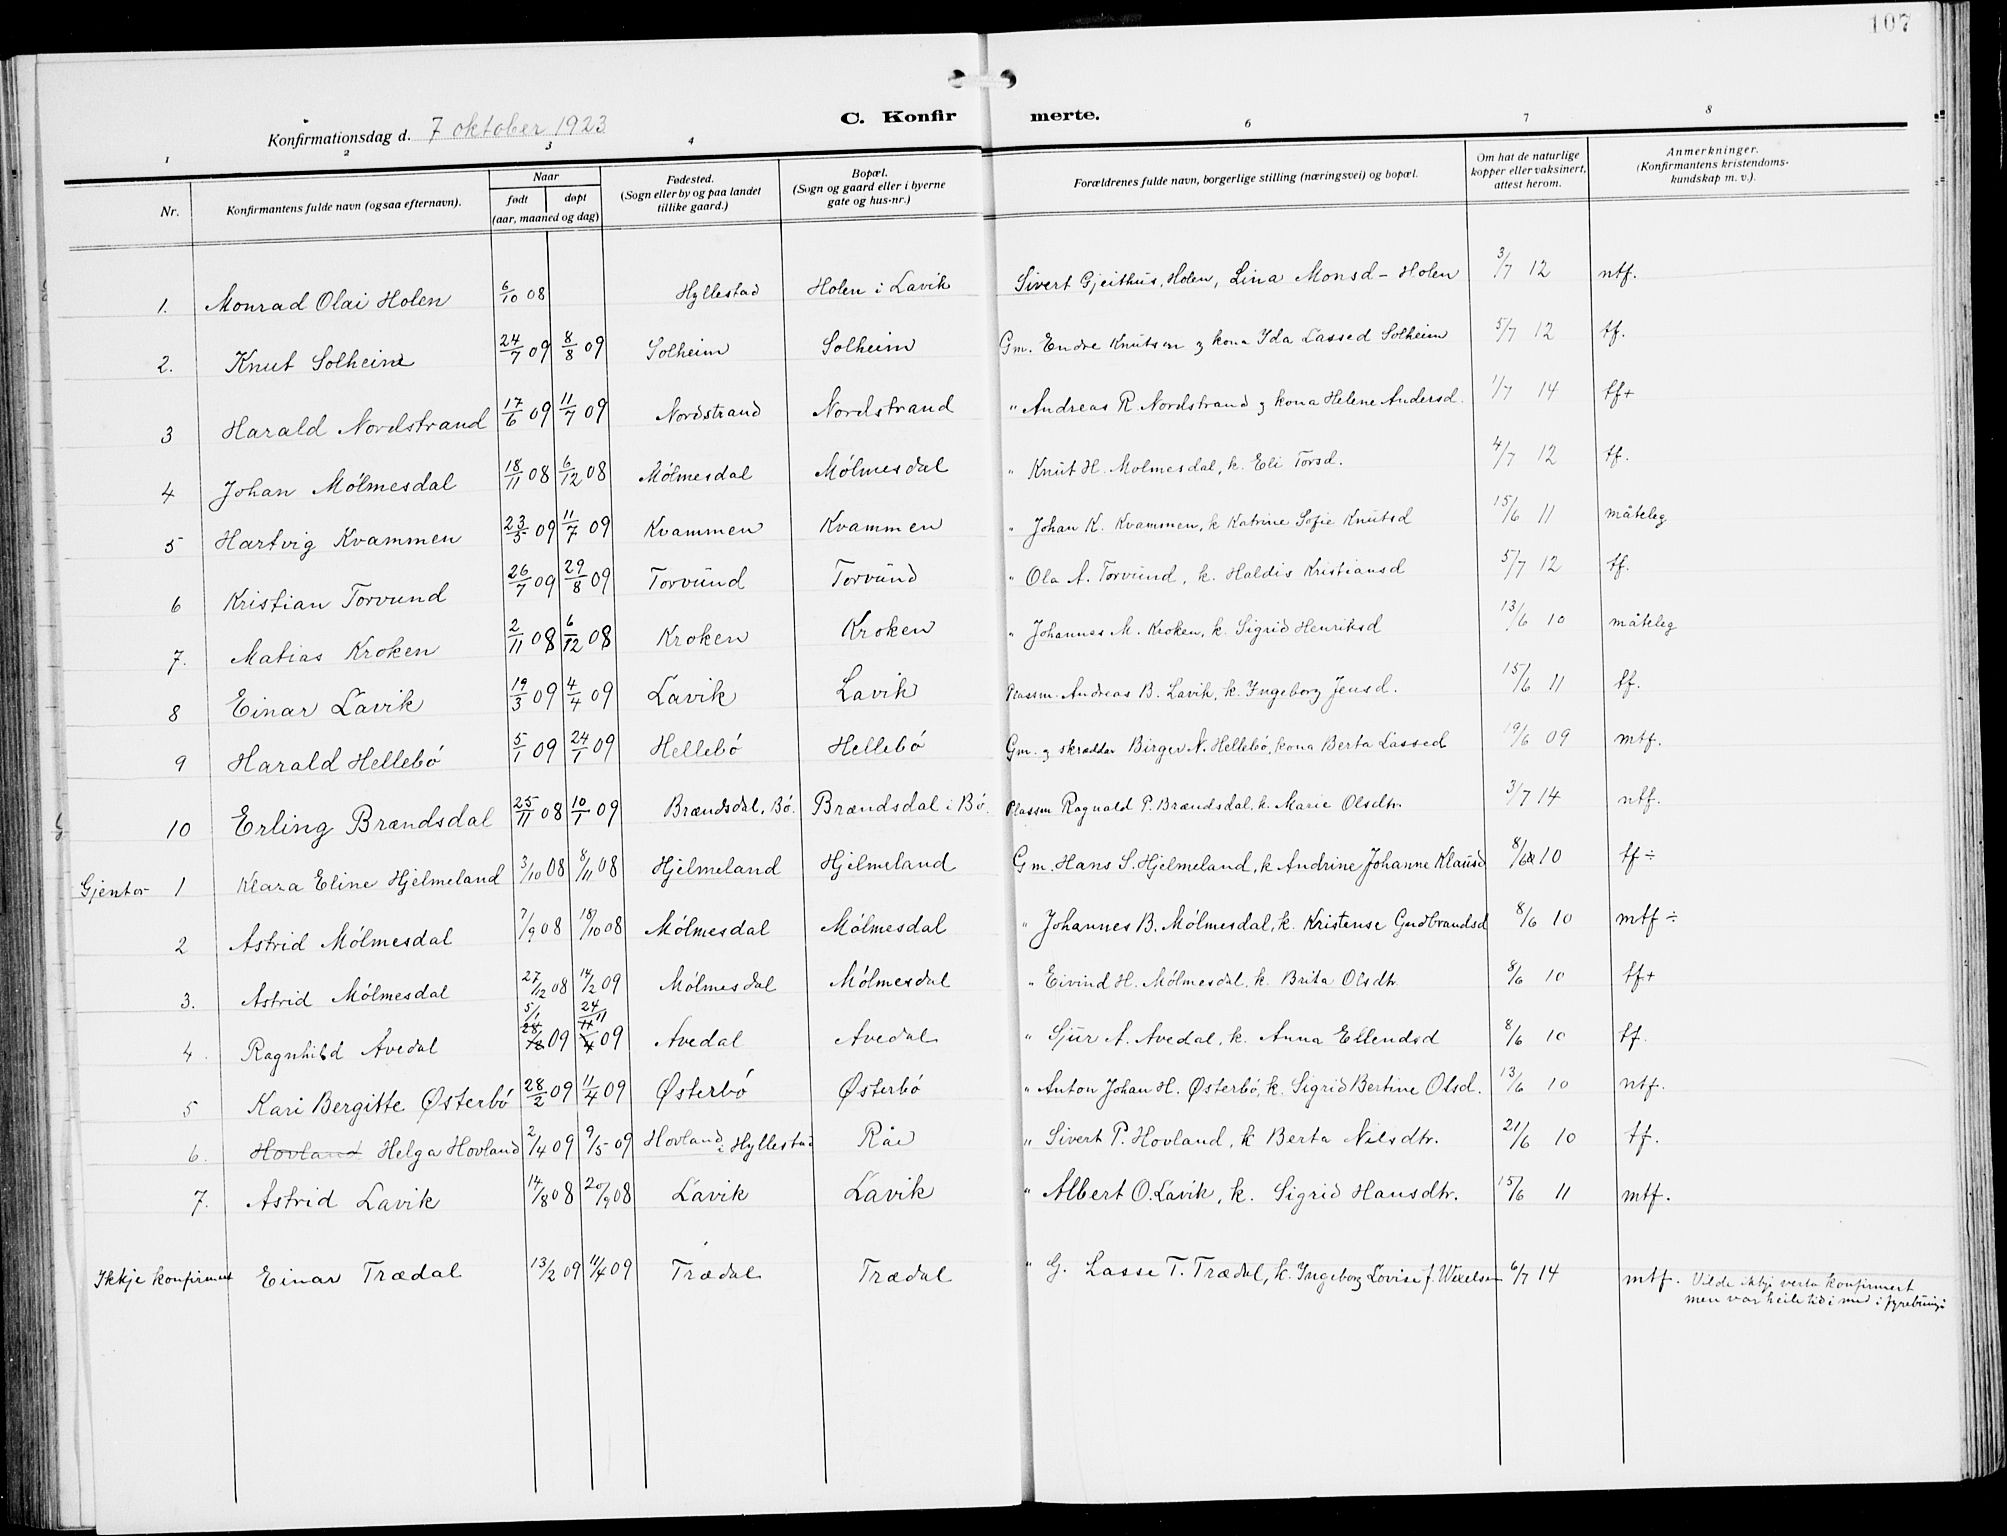 107
C. Konfirmerte.
Konfirmationsdag d. 7 oktober 1923
1 2 3 4 6 7 8
Nr. Konfirmantens fulde navn (ogsaa efternavn). Naar født døpt (aar, maaned og dag) Fødested. (Sogn eller by og paa landet tillike gaard.) Bopæl. (Sogn og gaard eller i byerne gate og hus-nr.) Forældrenes fulde navn, borgerlige stilling (næringsvei) og bopæl. Om hat de naturlige kopper eller vaksinert, attest herom. Anmerkninger. (Konfirmantens kristendomskundskap m. v.).
1. Monrad Olai Holen 6/10 08 Hyllestad Holen i Lavik Sivert Gjeithus, Holen, Lina Monsd - Holen 3/7 12 ntf.
2. Knut Solheim 24/7 09 8/8 09 Solheim Solheim Gm. Endre Knutson og kona Ida Lassed Solheim 5/7 12 tf.
3 Harald Nordstrand 17/6 09 11/7 09 Nordstrand Nordstrand " Andreas R. Nordstrand og kona Helene Andersd. 1/7 14 tf+
4 Johan Mólmesdal 18/11 08 6/12 08 Mólmesdal Mólmesdal " Knut H. Molmesdal, k. Eli Torsd. 4/7 12 tf.
5 Hartvig Kvammen 23/5 09 11/7 09 Kvammen Kvammen " Johan K. Kvammen, k Katrine Sofie Knutsd 15/6 11 måteleg
6 Kristian Torvund 26/7 09 29/8 09 Torvund Torvund " Ola A. Torvund, k. Haldis Kristiansd 5/7 12 tf.
7. Matias Kroken 2/11 08 6/12 08 Kroken Kroken " Johannes M. Kroken, k. Sigrid Henriksd 13/6 10 måteleg
8 Einar Lavik 19/3 09 4/4 09 Lavik Lavik Plassm. Andreas B. Lavik, k. Ingeborg Jensd. 15/6 11 tf.
9 Harald Hellebó 5/1 09 24/1 09 Hellebó Hellebó Gm. og skrædder Birger N. Hellebó, kona Berta Lassed 19/6 09 mtf.
10 Erling Brændsdal 25/11 08 10/1 09 Brændsdal, Bó. Brændsdal i Bó. Plassm Ragnald P. Brændsdal, k. Marie Olsdtr. 3/7 14 ntf.
Gjentor 1 Klara Eline Hjelmeland 3/10 08 8/11 08 Hjelmeland Hjelmeland Gm. Hans S. Hjelmeland, k Andrine Johanne Klausd 8/6 10 tf ÷
2 Astrid Mólmesdal 7/9 08 18/10 08 Mólmesdal Mólmesdal " Johannes B. Mólmesdal, k. Kristense Gudbrandsd 8/6 10 mtf ÷
3. Astrid Mólmesdal 27/12 08 14/2 09 Mólmesdal Mólmesdal " Eivind H. Mólmesdal, k. Brita Olsdtr. 8/6 10 tf+
4. Ragnhild Avedal 5/1 09 24/11 09 Avedal Avedal " Sjur A. Avedal, k. Anna Ellendsd 8/6 10 tf.
5 Kari Bergitte Østerbó 28/2 09 11/4 09 Østerbó Østerbó " Anton Johan H. Østerbó, k. Sigrid Bertine Olsd. 13/6 10 ntf.
6. Hovland Helga Hovland 2/4 09 9/5 09 Hovland i Hyllestad Råe " Sivert P. Hovland, k Berta Nilsdtr. 21/6 10 tf.
7. Astrid Lavik 14/8 08 20/9 08 Lavik Lavik " Albert O. Lavik, k. Sigrid Hansdtr. 15/6 11 mtf.
Ikkje konfirmert Einar Trædal 13/2 09 11/4 09 Trædal Trædal " G. Lasse T. Trædal, k. Ingeborg Lovise f. Wexelsen 6/7 14 mtf. Vilde ikkje verta konfirmert
men var heile tidi med i fyrebuingi